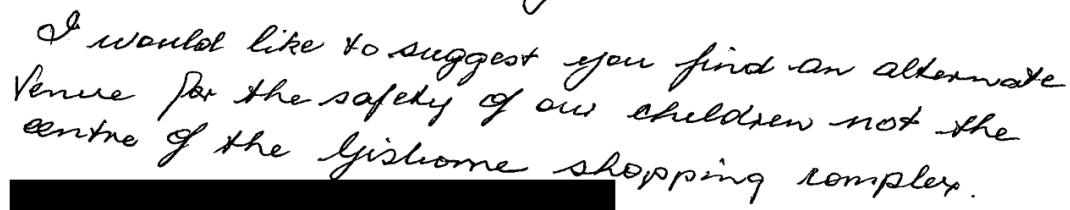 I would like to suggest you find an alternate
Venue for the safety of our children not the
centre of the Gisborne shopping complex.